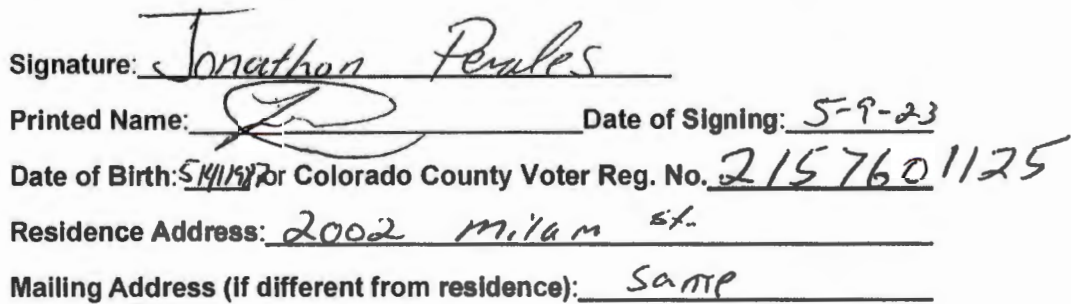 Signature: Jonathon Perales
Printed Name: Date of Signing: 5-9-23
Date of Birth: or Colorado County Voter Reg. No. 2157601125
Residence Address: 2002 Milam st.
Mailing Address (if different from residence): Same